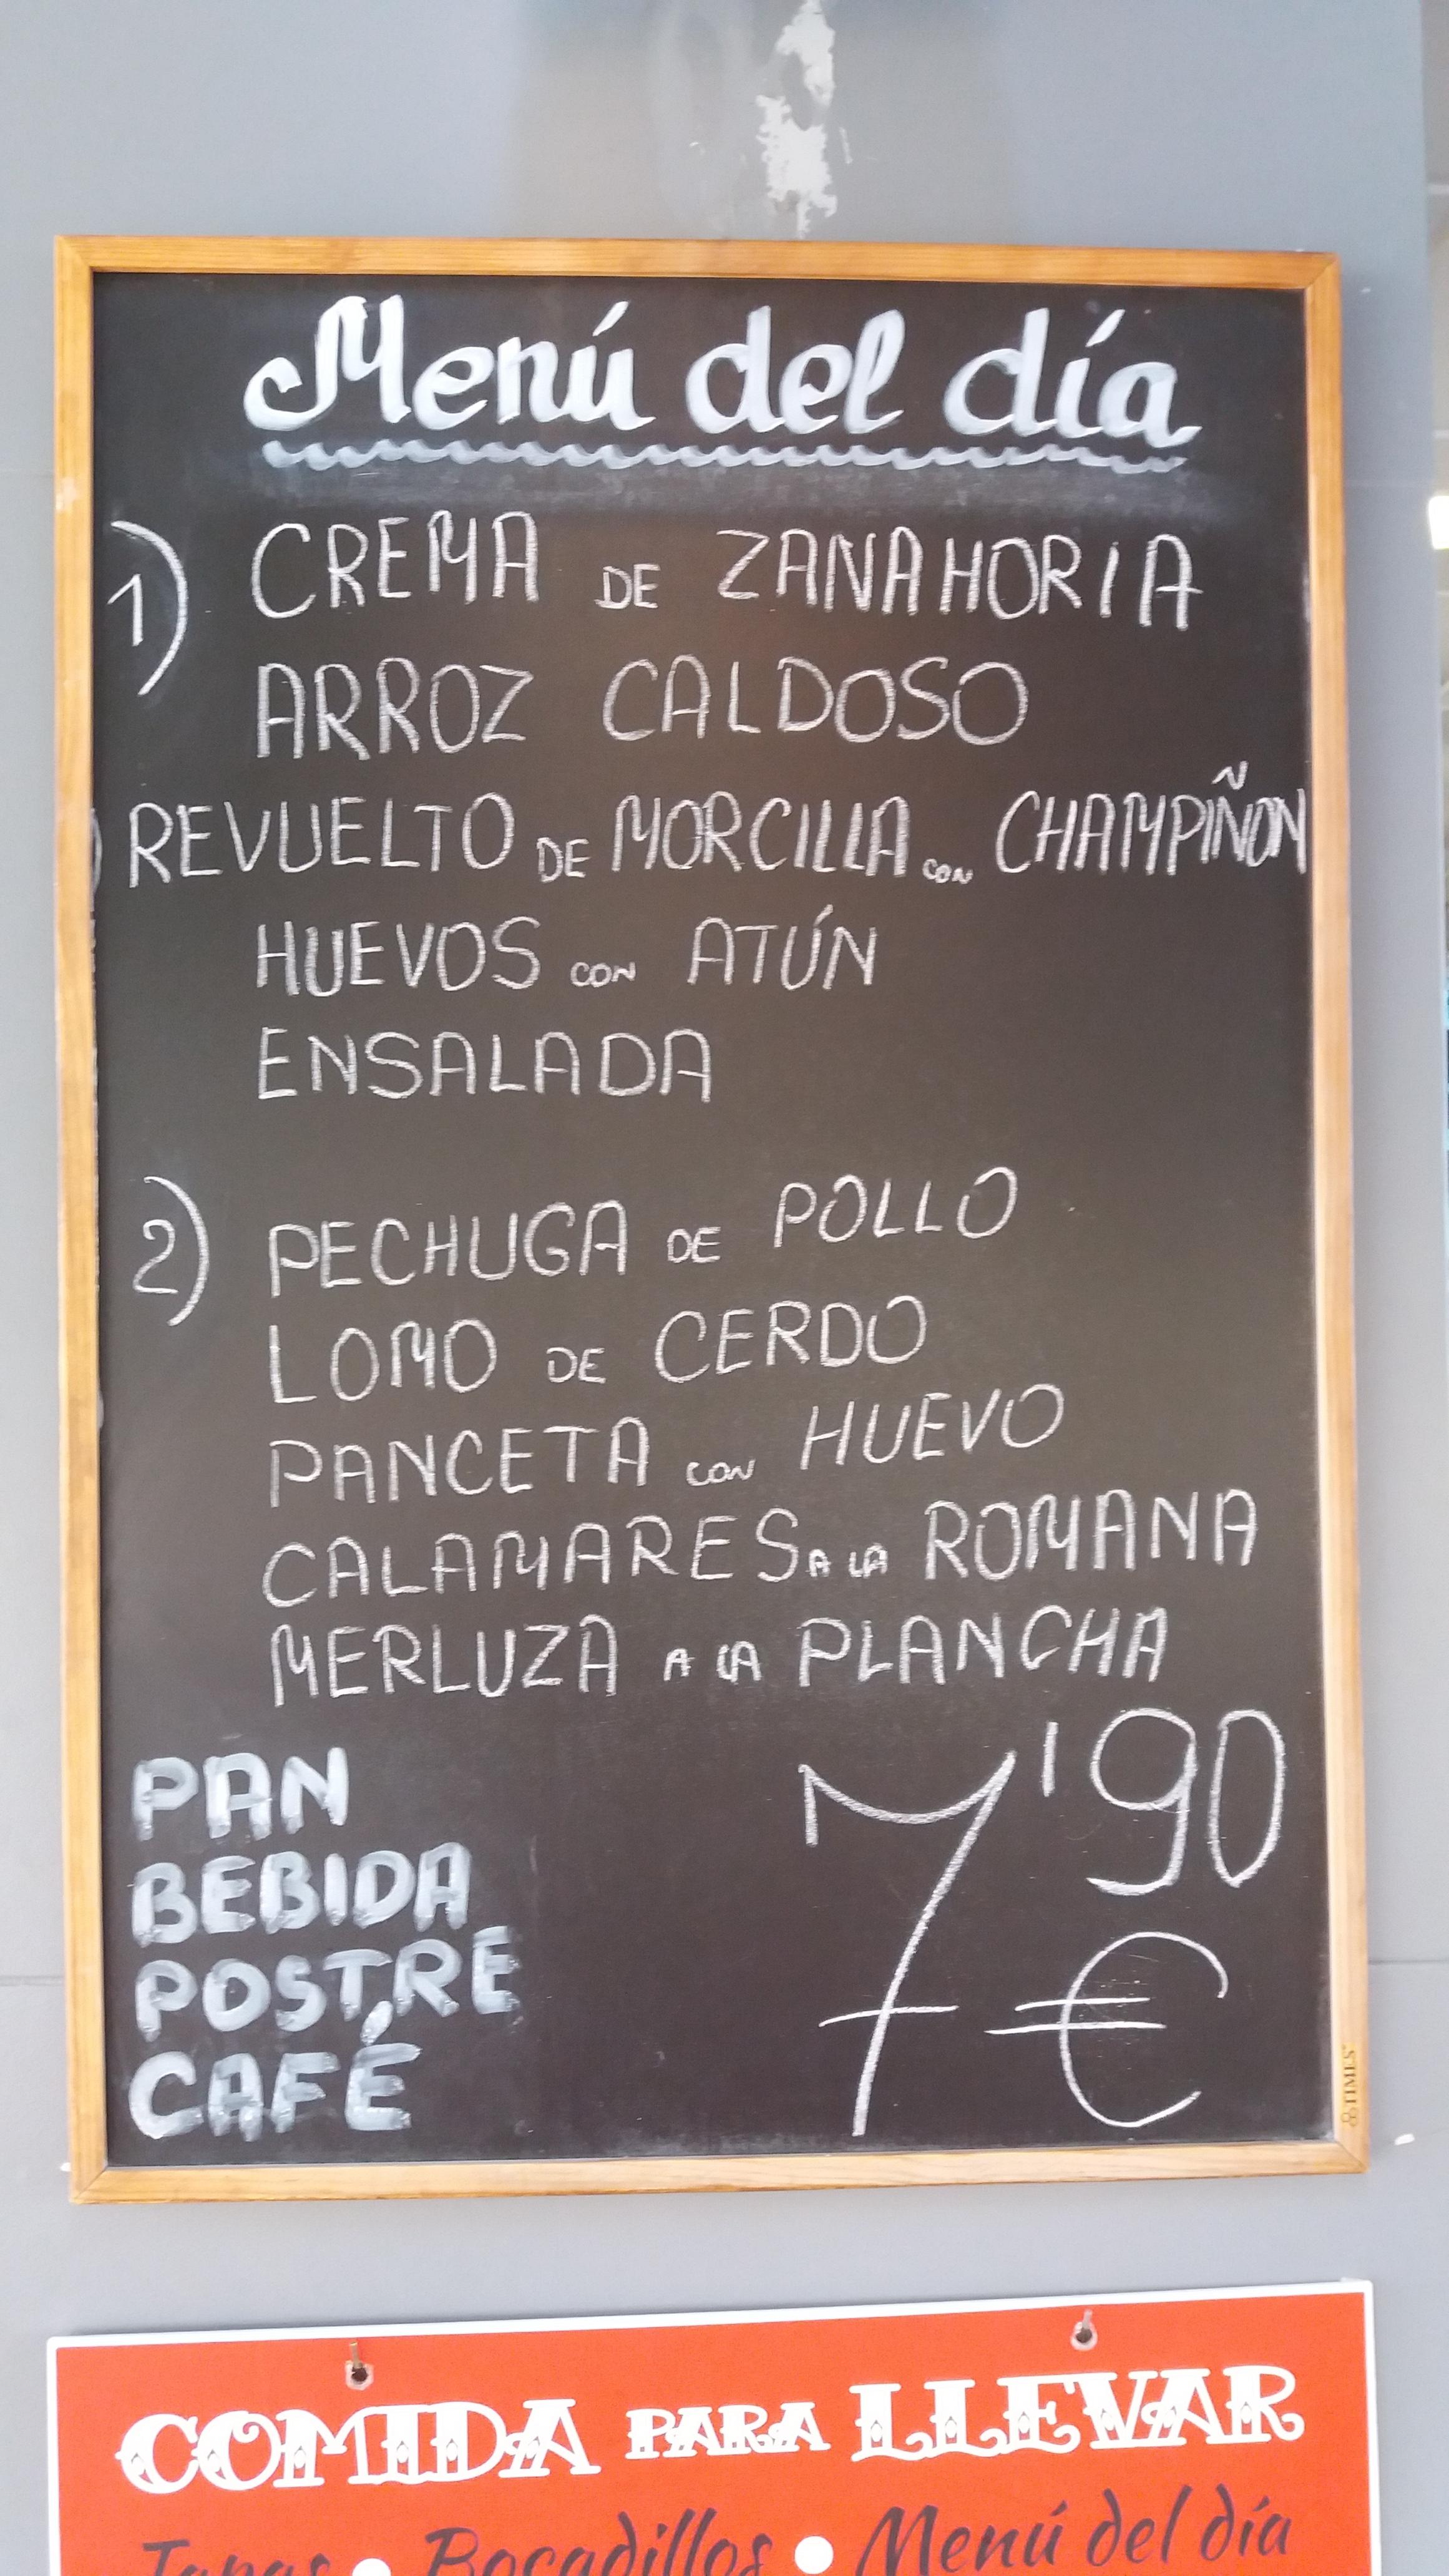 Menú del día
1) CREMA DE ZANAHORIA
ARROZ CALDOSO
REVUELTO DE MORCILLA CON CHAMPIÑON
HUEVOS CON ATÚN
ENSALADA
2) PECHUGA DE POLLO
LOMO DE CERDO
PANCETA CON HUEVO
CALAMARES A LA ROMANA
MERLUZA A LA PLANCHA
PAN
BEBIDA
POSTRE
CAFÉ
7'90
€
TIMES
COMIDA PARA LLEVAR
Tapas • Bocadillos • Menú del día